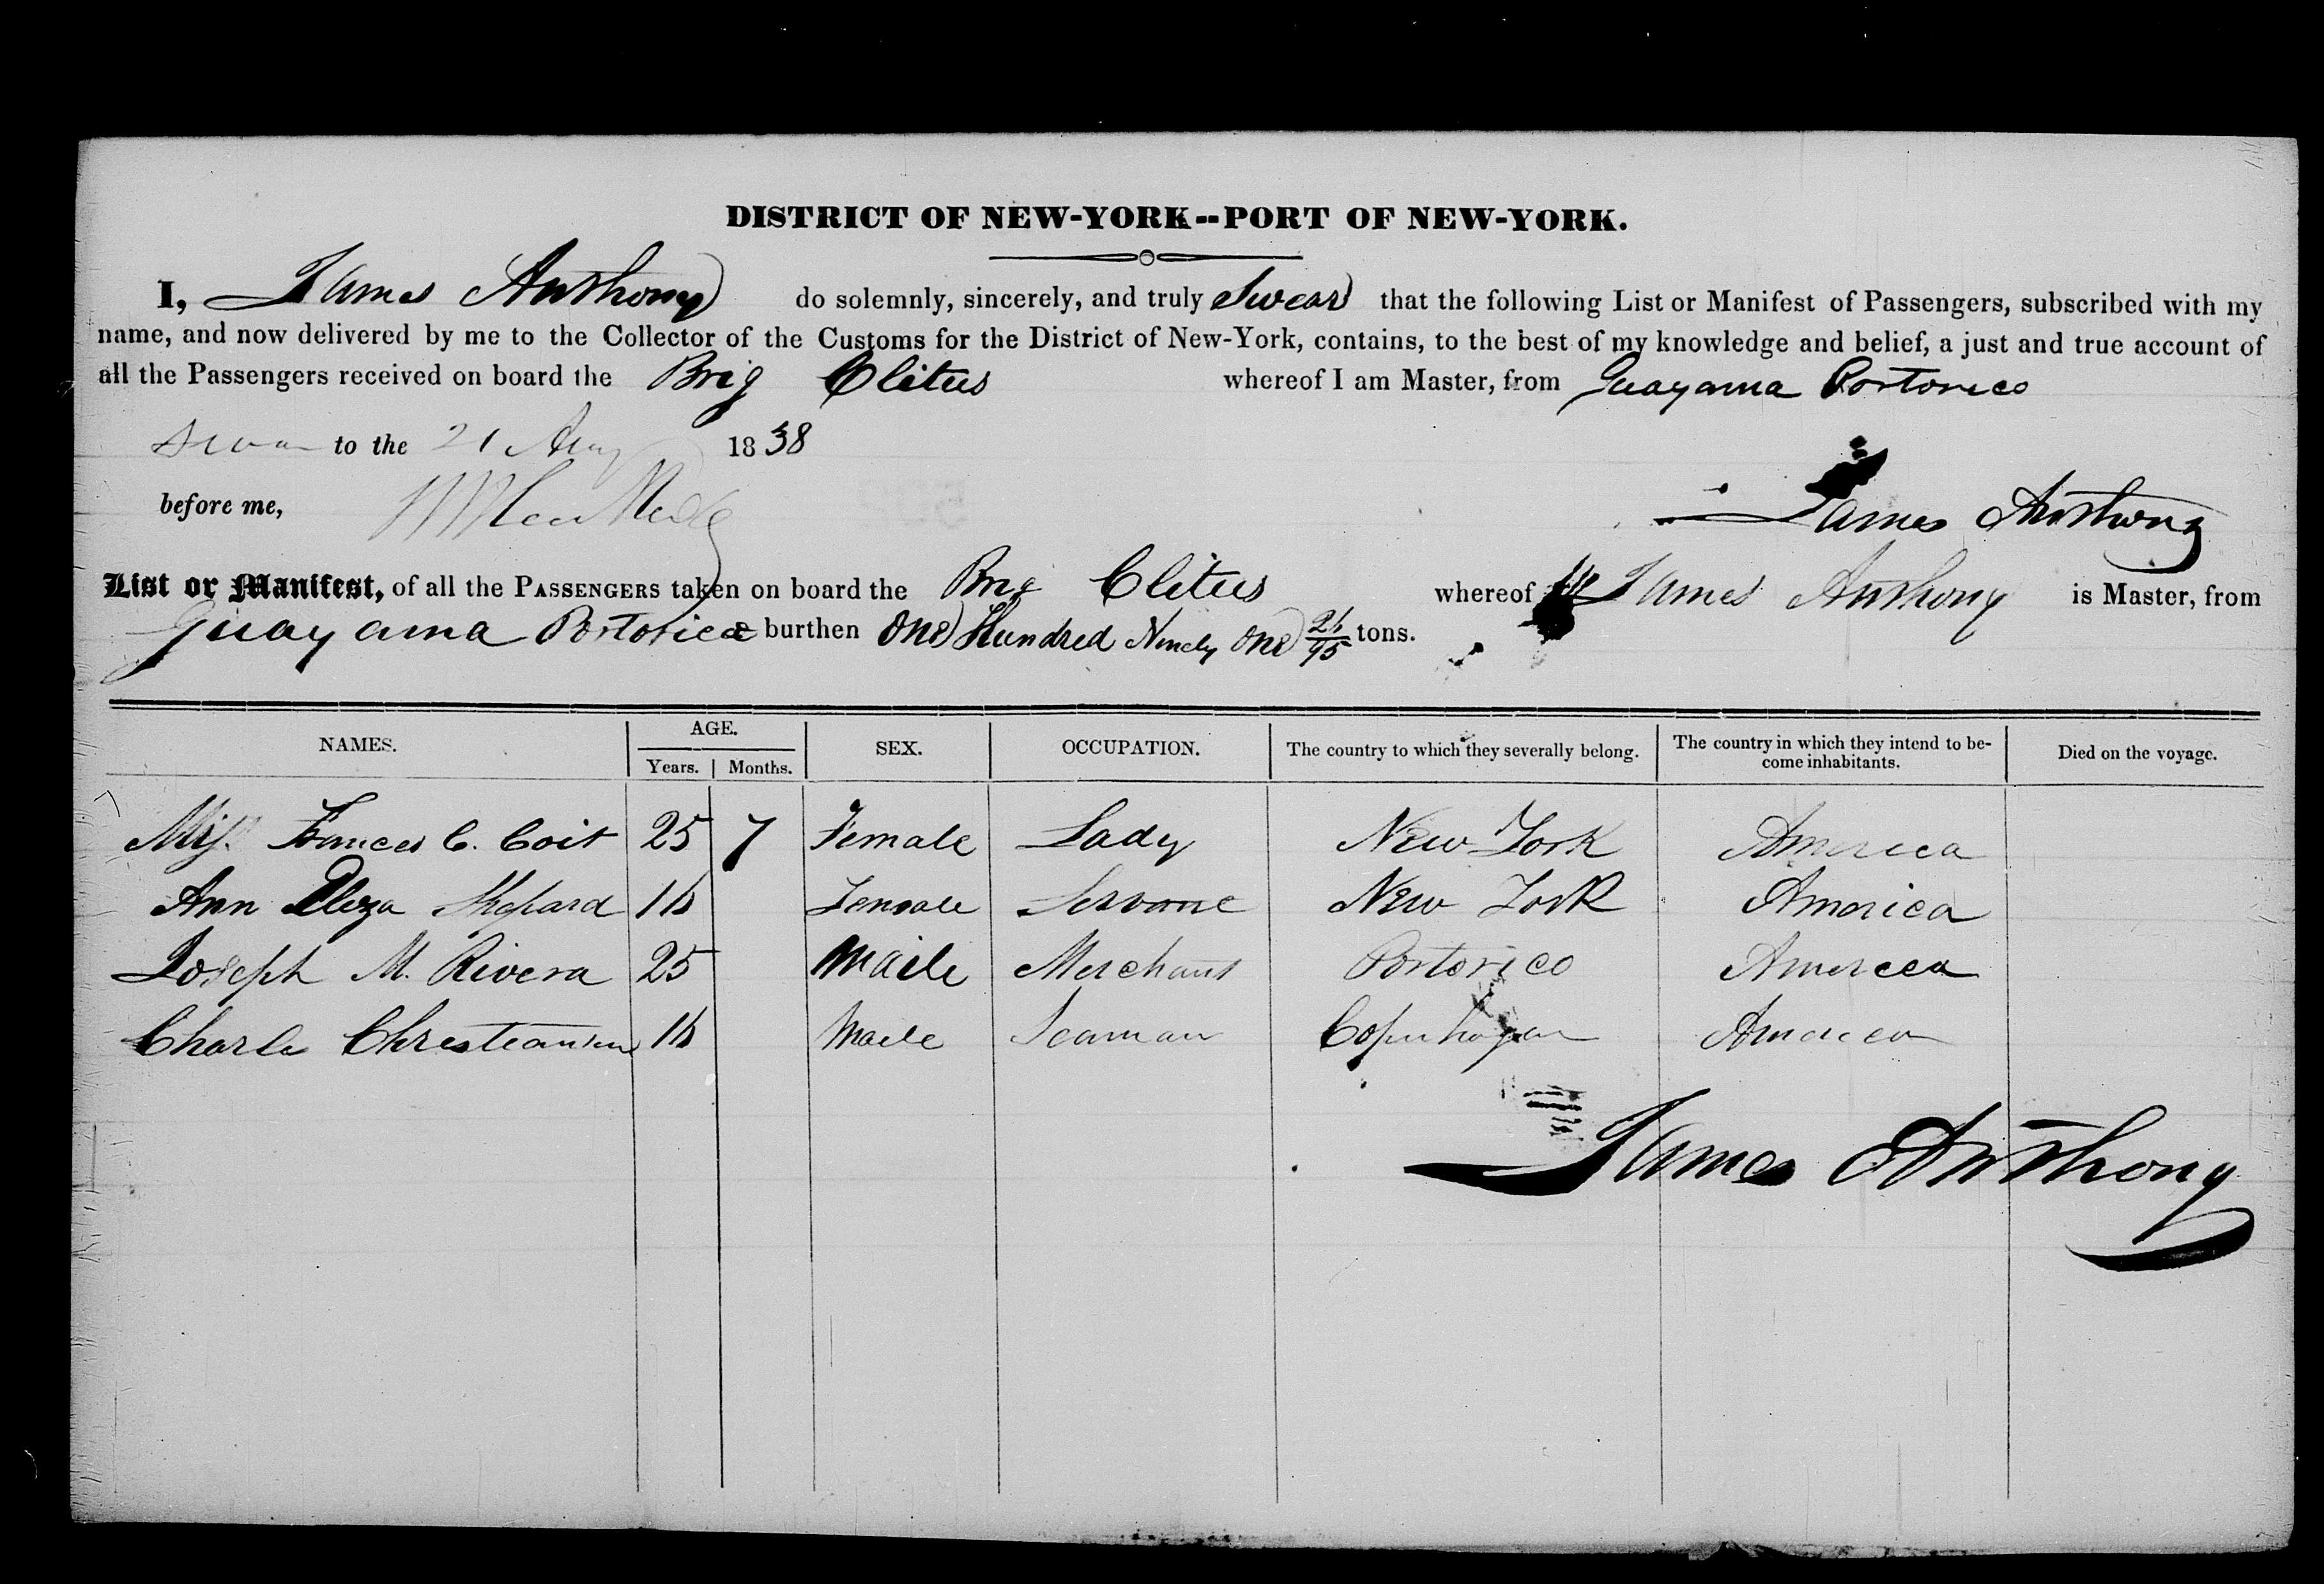 DISTRICT OF NEW-YORK--PORT OF NEW-YORK.
I, James Anthony do solemnly, sincerely, and truly Swear that the following List or Manifest of Passengers, subscribed with my
name, and now delivered by me to the Collector of the Customs for the District of New-York, contains, to the best of my knowledge and belief, a just and true account of
all the Passengers received on board the Brig Clitus whereof I am Master, from Guayama Portorico
to the 21 Aug 1838
before me,
James Anthony
List or Manifest, of all the PASSENGERS taken on board the Brig Clitus whereof James Anthony is Master, from
Guayama Portorico burthen One Hundred Ninety One /95 tons.
NAMES. AGE. SEX. OCCUPATION. The country to which they severally belong. The country in which they intend to be- Died on the voyage.
Years. Months. come inhabitants.
Frances C. Coit 25 7 Female Lady New York America
Ann Eliza Shepard Female New York America
Joseph M. Rivera 25 Maile Merchant Portorico America
Charles Christiansen Maile Seaman Copenhagen America
James Anthony